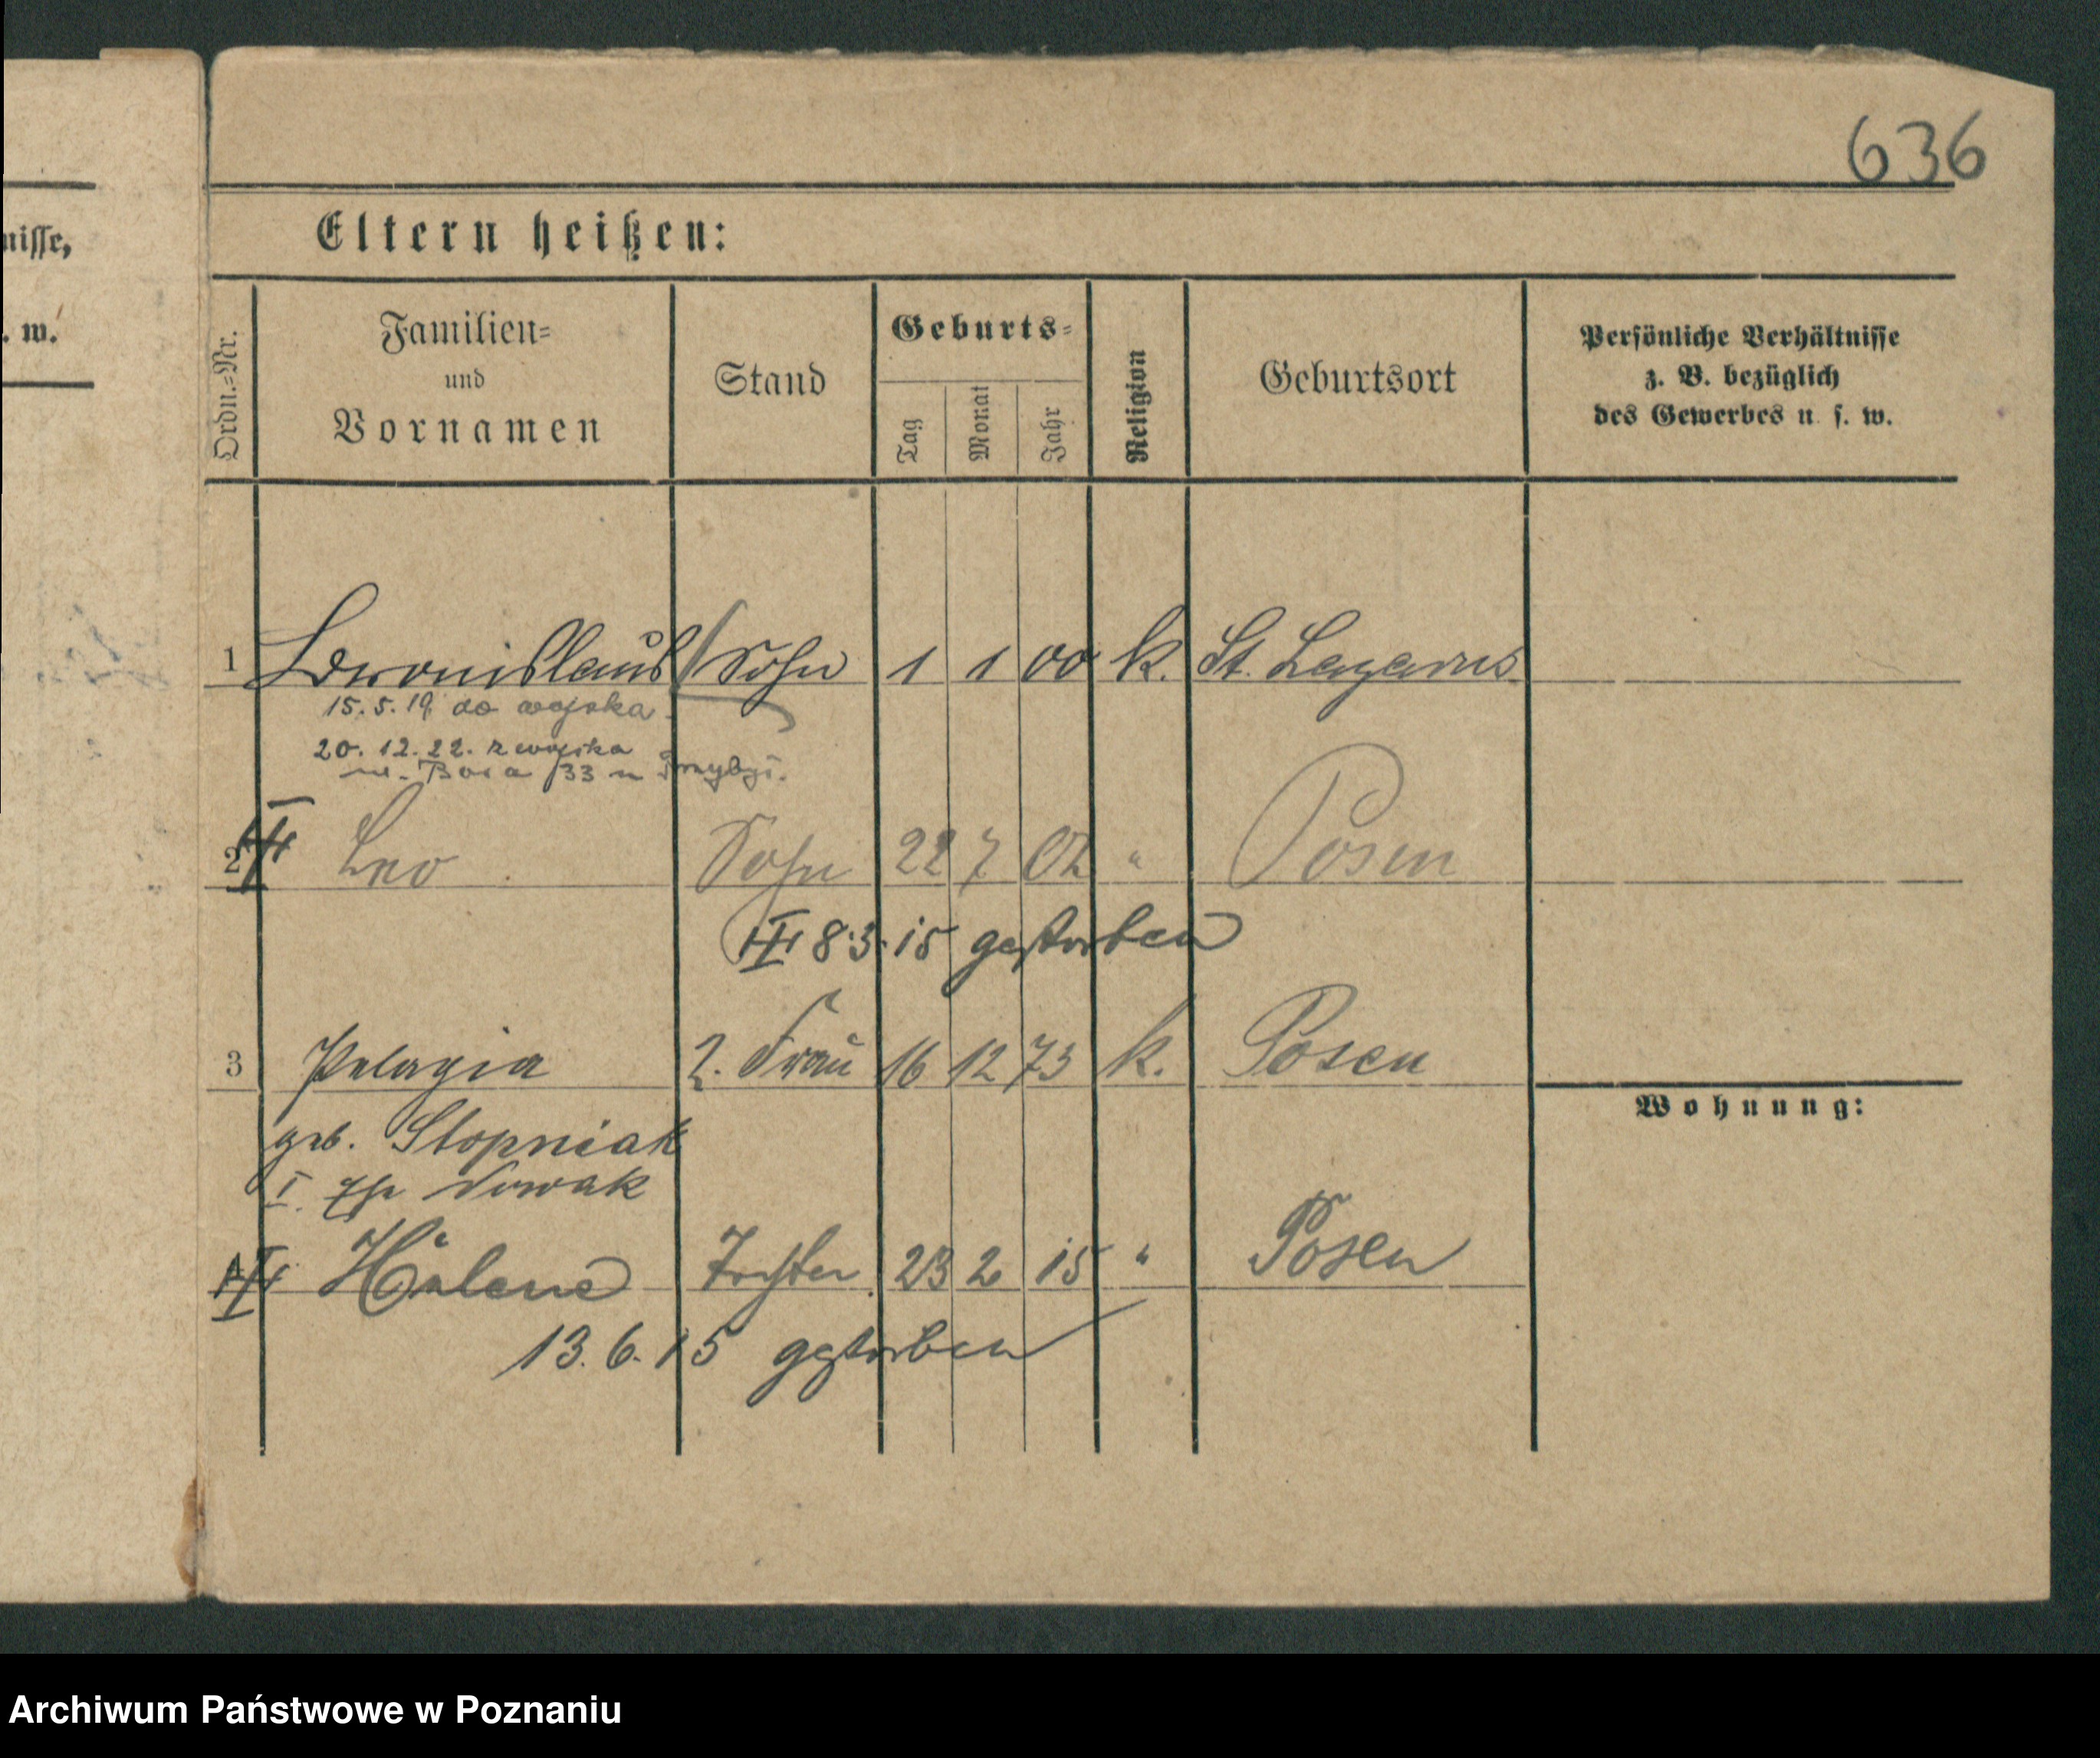 636
nisse,
. w.
Eltern heißen:
Ordn.=Nr.
Familien=
und
Vornamen
Stand
Geburts=
Tag
Monat
Jahr
Religion
Geburtsort
Persönliche Verhältnisse
z. B. bezüglich
des Gewerbes u. s. w.
1 Bronislaus Sohn 1 1 00 k. St. Lazarus
15. 5. 19. do wojska
20. 12. 22. z wojska
33
2 Leo Sohn 22 7 02 " Posen
8. 3. 15 gestorben
3 Pelagia 2. Frau 16 12 73 k. Posen
geb. Stopniak
I. Nowak
Wohnung:
4 Helene Tochter 23 2 15 " Posen
13. 6. 15 gestorben
Archiwum Państwowe w Poznaniu